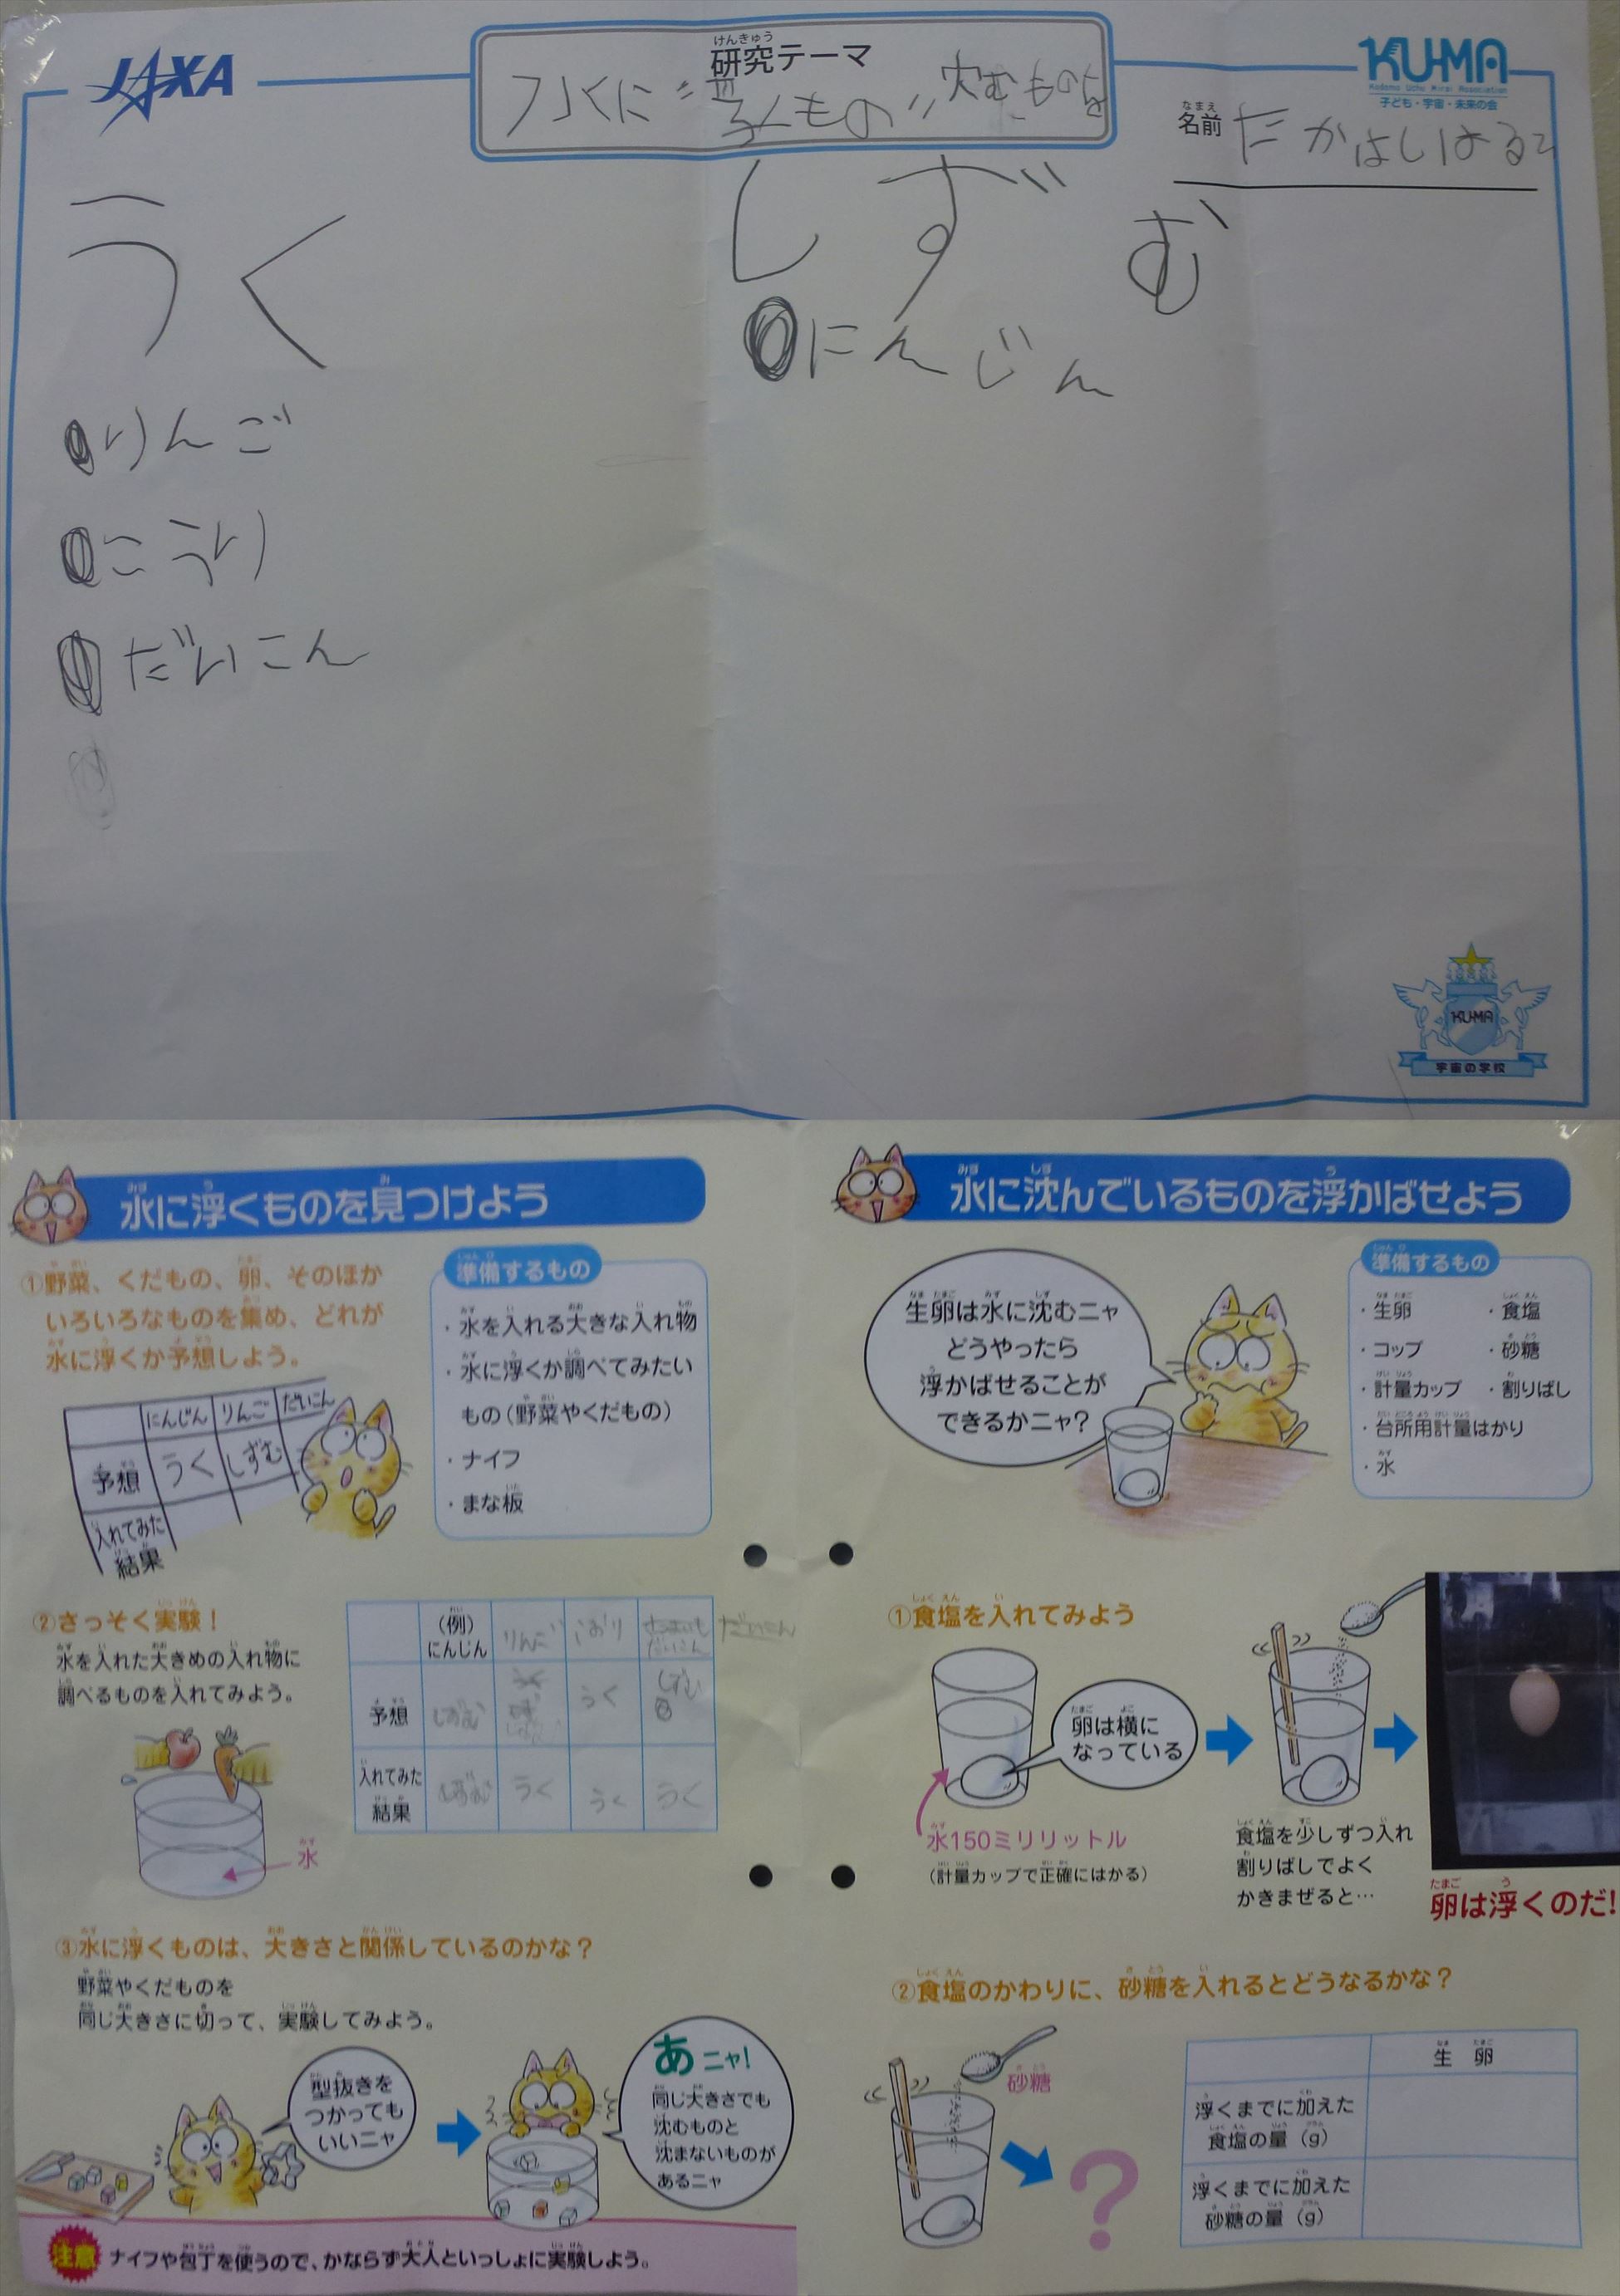 JAXA
研究テーマ
けんきゅう
くもの
KU-MA
Kodomo Uchu Mirai Association
子ども・宇宙・未来の会
なまえ
名前
たかはしはる
うく
しずむ
にんじん
りんご
こうり
だいこん
KU-MA
宇宙の学校
水に浮くものを見つけよう
①野菜、くだもの、卵、そのほか
いろいろなものを集め、どれが
水に浮くか予想しよう。
準備するもの
・水を入れる大きな入れ物
・水に浮くか調べてみたい
もの(野菜やくだもの)
・ナイフ
・まな板
にんじん りんご だいこん
予想 うく しずむ
入れてみた
結果
②さっそく実験!
水を入れた大きめの入れ物に
調べるものを入れてみよう。
水
(例)
にんじん りんご こおり だいこん
予想 しずむ うく しずむ
入れてみた
結果 しずむ うく うく うく
③水に浮くものは、大きさと関係しているのかな?
野菜やくだものを
同じ大きさに切って、実験してみよう。
型抜きを
つかっても
いいニャ
あニャ!
同じ大きさでも
沈むものと
沈まないものが
あるニャ
注意 ナイフや包丁を使うので、かならず大人といっしょに実験しよう。
水に沈んでいるものを浮かばせよう
生卵は水に沈むニャ
どうやったら
浮かばせることが
できるかニャ?
準備するもの
・生卵 ・食塩
・コップ ・砂糖
・計量カップ ・割りばし
・台所用計量はかり
・水
①食塩を入れてみよう
卵は横に
なっている
水150ミリリットル
(計量カップで正確にはかる)
食塩を少しずつ入れ
割りばしでよく
かきまぜると…
卵は浮くのだ!
②食塩のかわりに、砂糖を入れるとどうなるかな?
砂糖
?
生 卵
浮くまでに加えた
食塩の量(g)
浮くまでに加えた
砂糖の量(g)